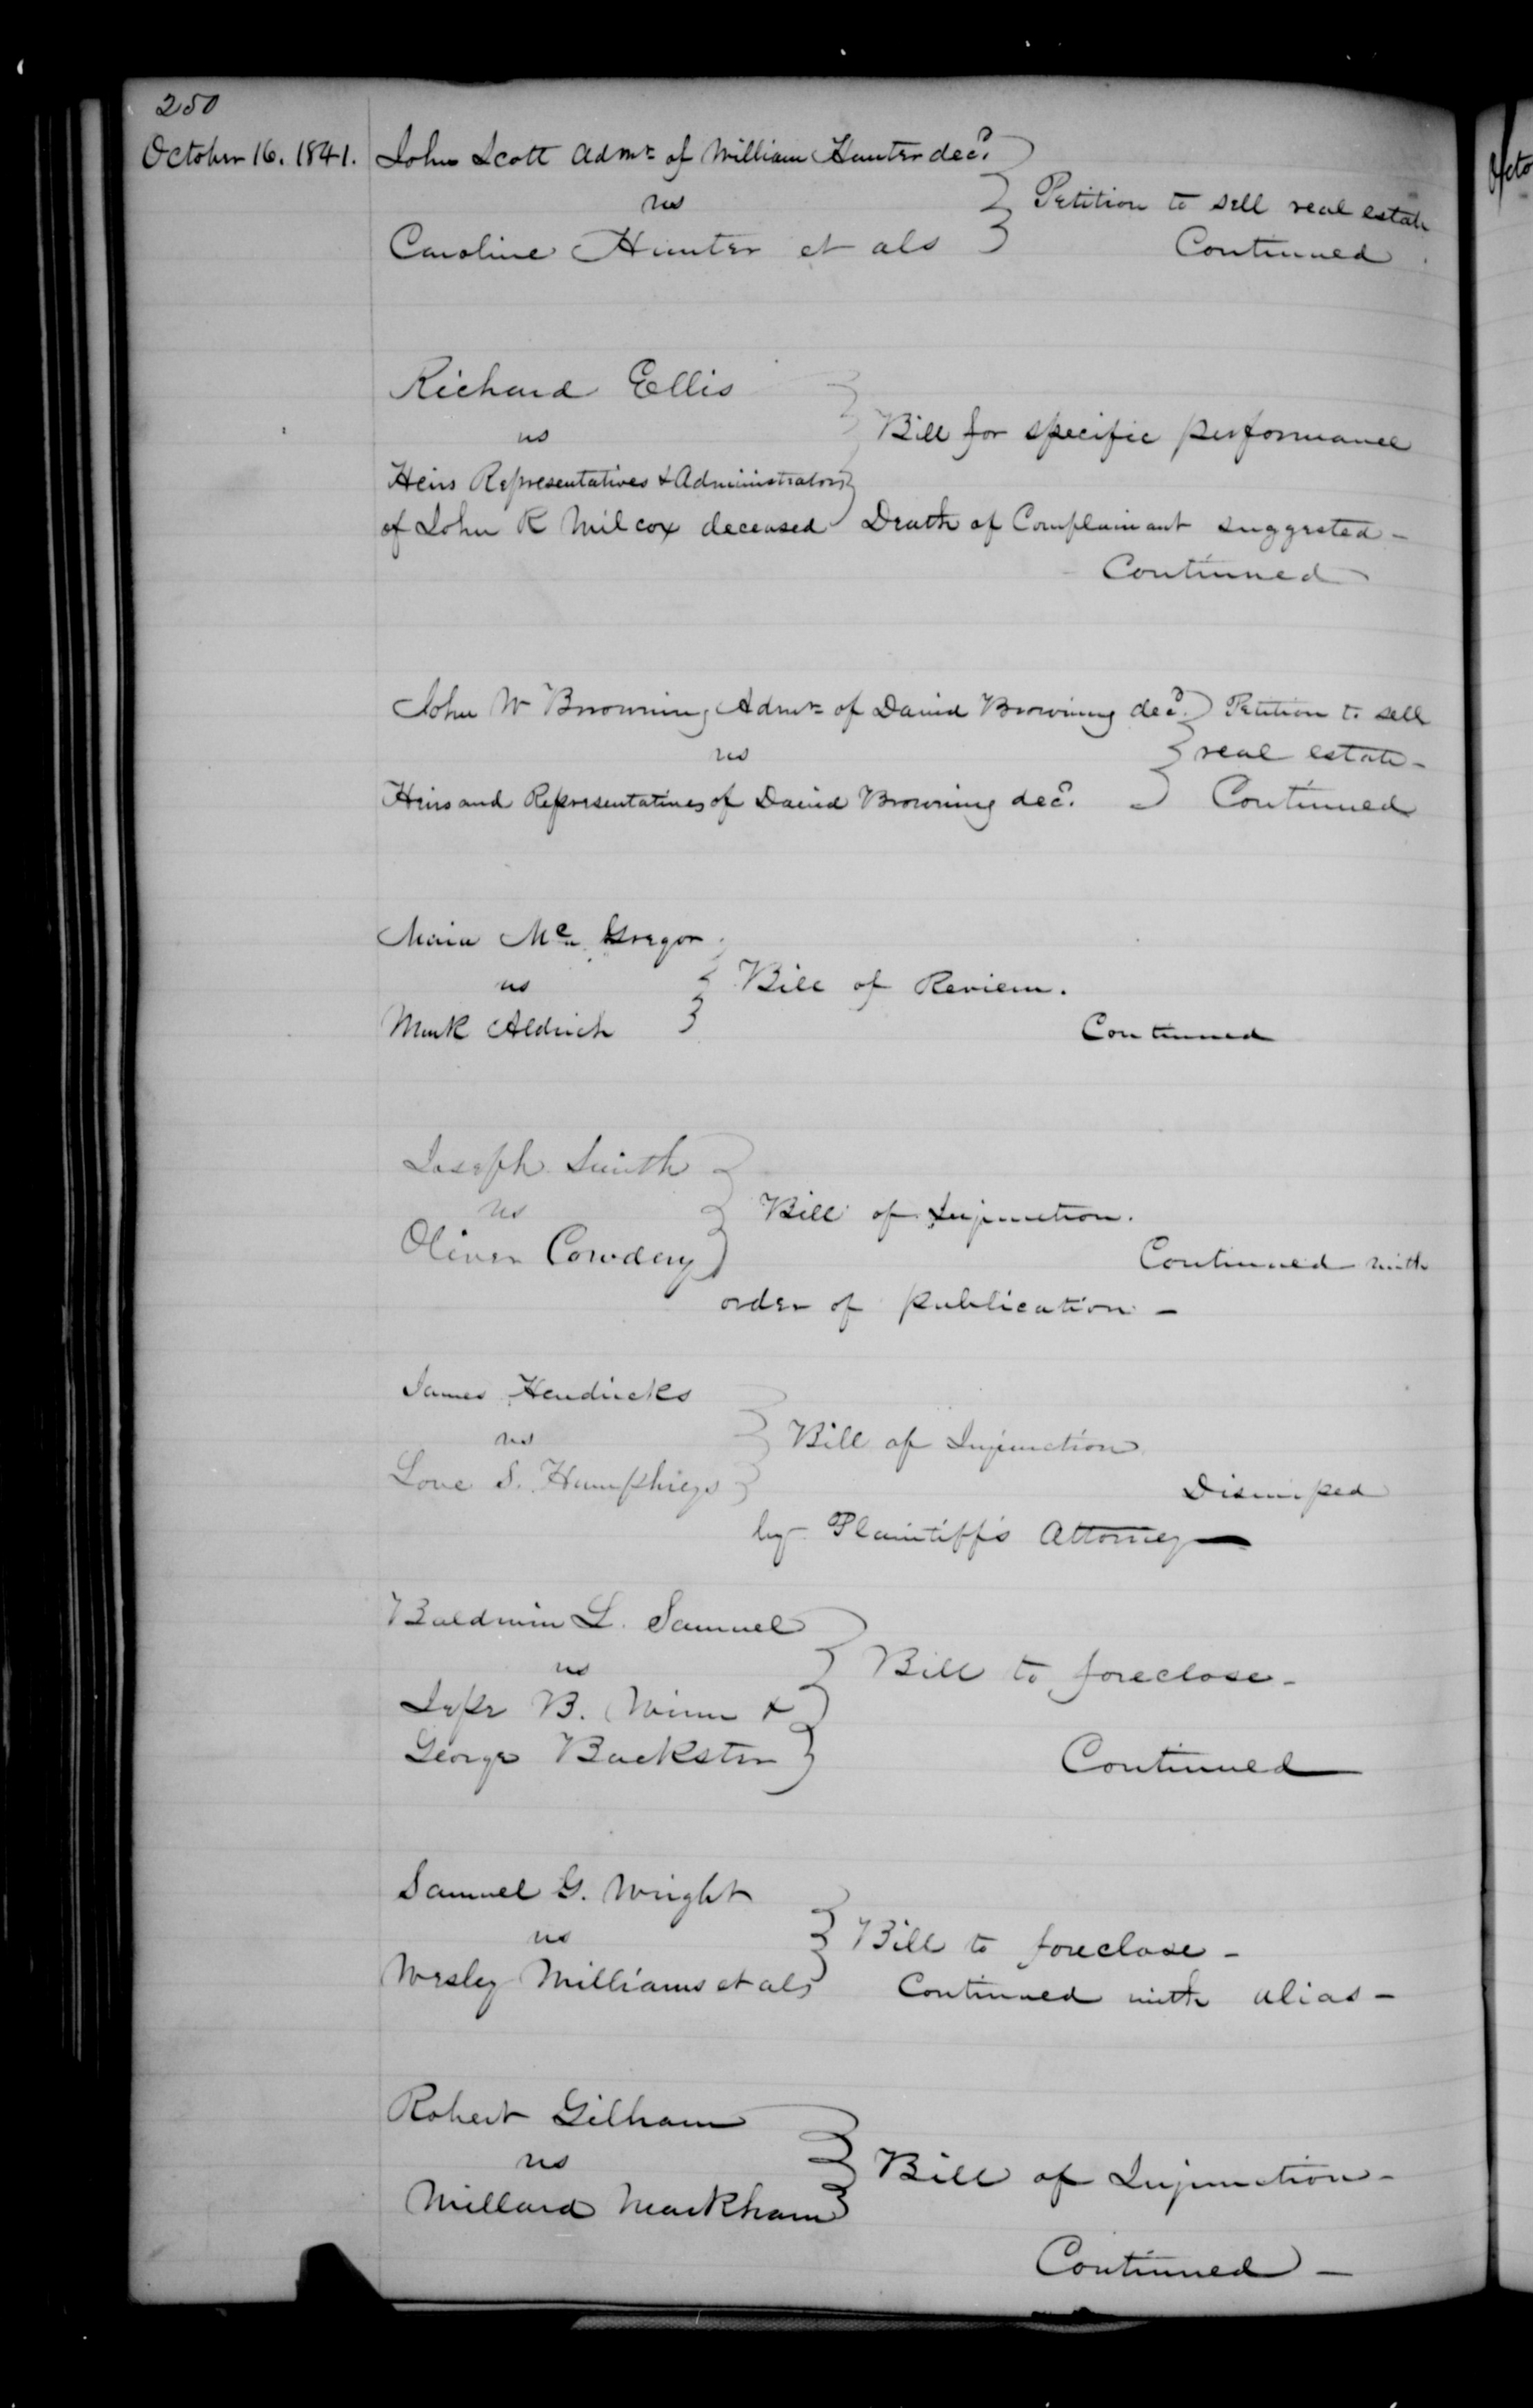 250
October 16. 1841. John Scott Admr of William Hunter decd.
vs
Petition to sell real estate
Caroline Hunter et als
Continued
Richard Ellis
vs
Bill for specific performance
Heirs Representatives & Administrators
of John R Wilcox deceased Death of Complainant suggested -
Continued
John W Browning Admr of David Browning decd. Petition to sell
vs
real estate -
Heirs and Representatives of David Browning decd. Continued
Mc Gregor
vs
Bill of Review.
Mark Aldrich
Continued
Joseph Smith
vs
Bill of Injunction.
Oliver Cowdery
Continued with
order of publication -
James Hendricks
vs
Bill of Injunction
Love S. Humphreys
Dismissed
by Plaintiff's Attorney —
Baldwin L. Samuel
vs
Bill to foreclose -
Jesse B. Winn &
George Backster
Continued
Samuel G. Wright
vs
Bill to foreclose -
Wesley Williams et als
Continued with alias -
Robert Gilham
vs
Bill of Injunction -
Willard Markham
Continued -